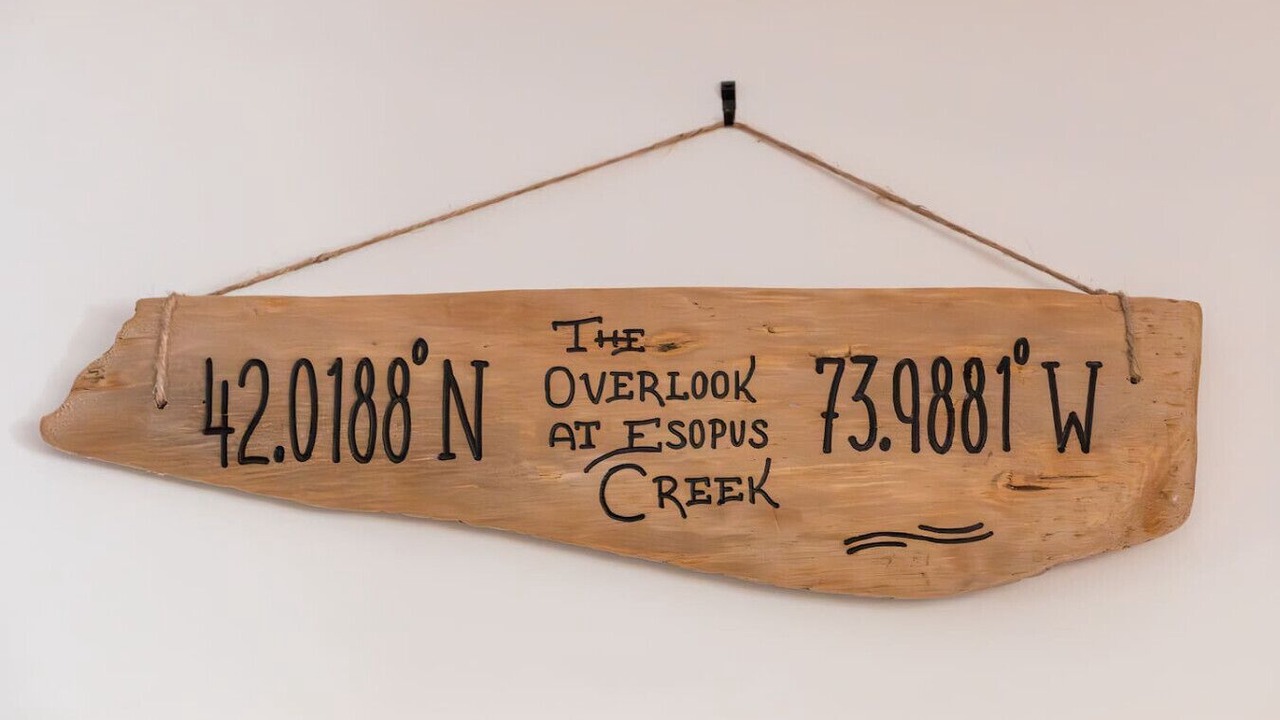 42.0188° N
THE
OVERLOOK
AT ESOPUS
CREEK
73.9881° W